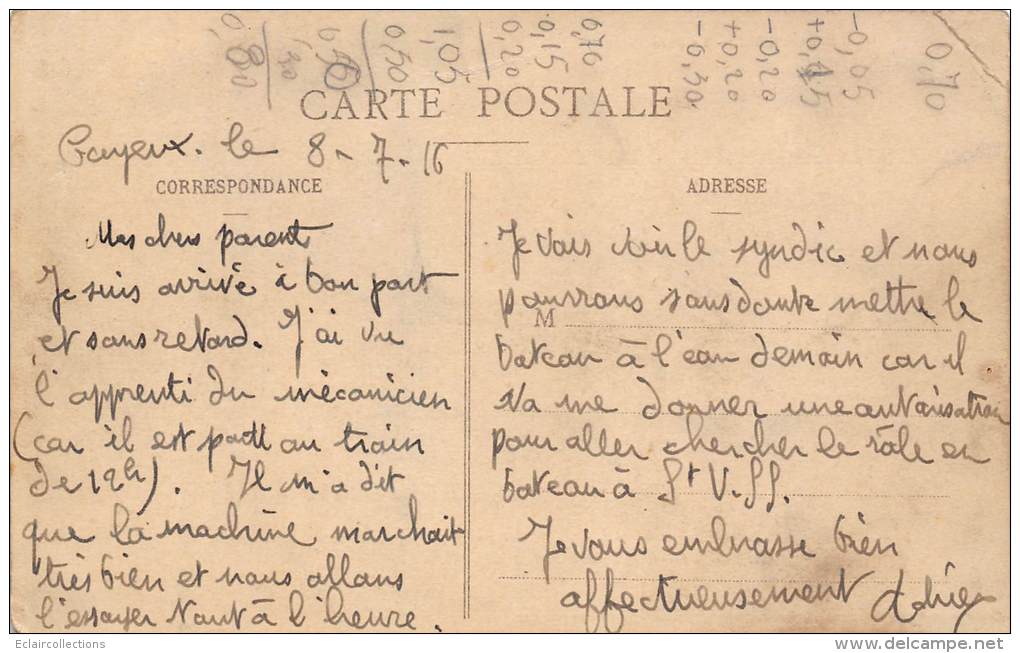 0,70
-0,05
+0,15
-0,20
+0,20
-0,30
0,70
0,15
0,20
1,05
0,50
0,50
1,30
0,80
CARTE POSTALE
Cayeux. le 8-7-16
CORRESPONDANCE
ADRESSE
Mes chers parents
Je suis arrivé à bon port
et sans retard. J'ai vu
l'apprenti du mécanicien
(car il est parti au train
de 12h). Il m'a dit
que la machine marchait
très bien et nous allons
l'essayer tout à l'heure.
Je vais voir le syndic et nous
pourrons sans doute mettre le
M
bateau à l'eau demain car il
va me donner une autorisation
pour aller chercher le rôle en
bateau à St V.
Je vous embrasse bien
affectueusement
Eclaircollections
www.delcampe.net